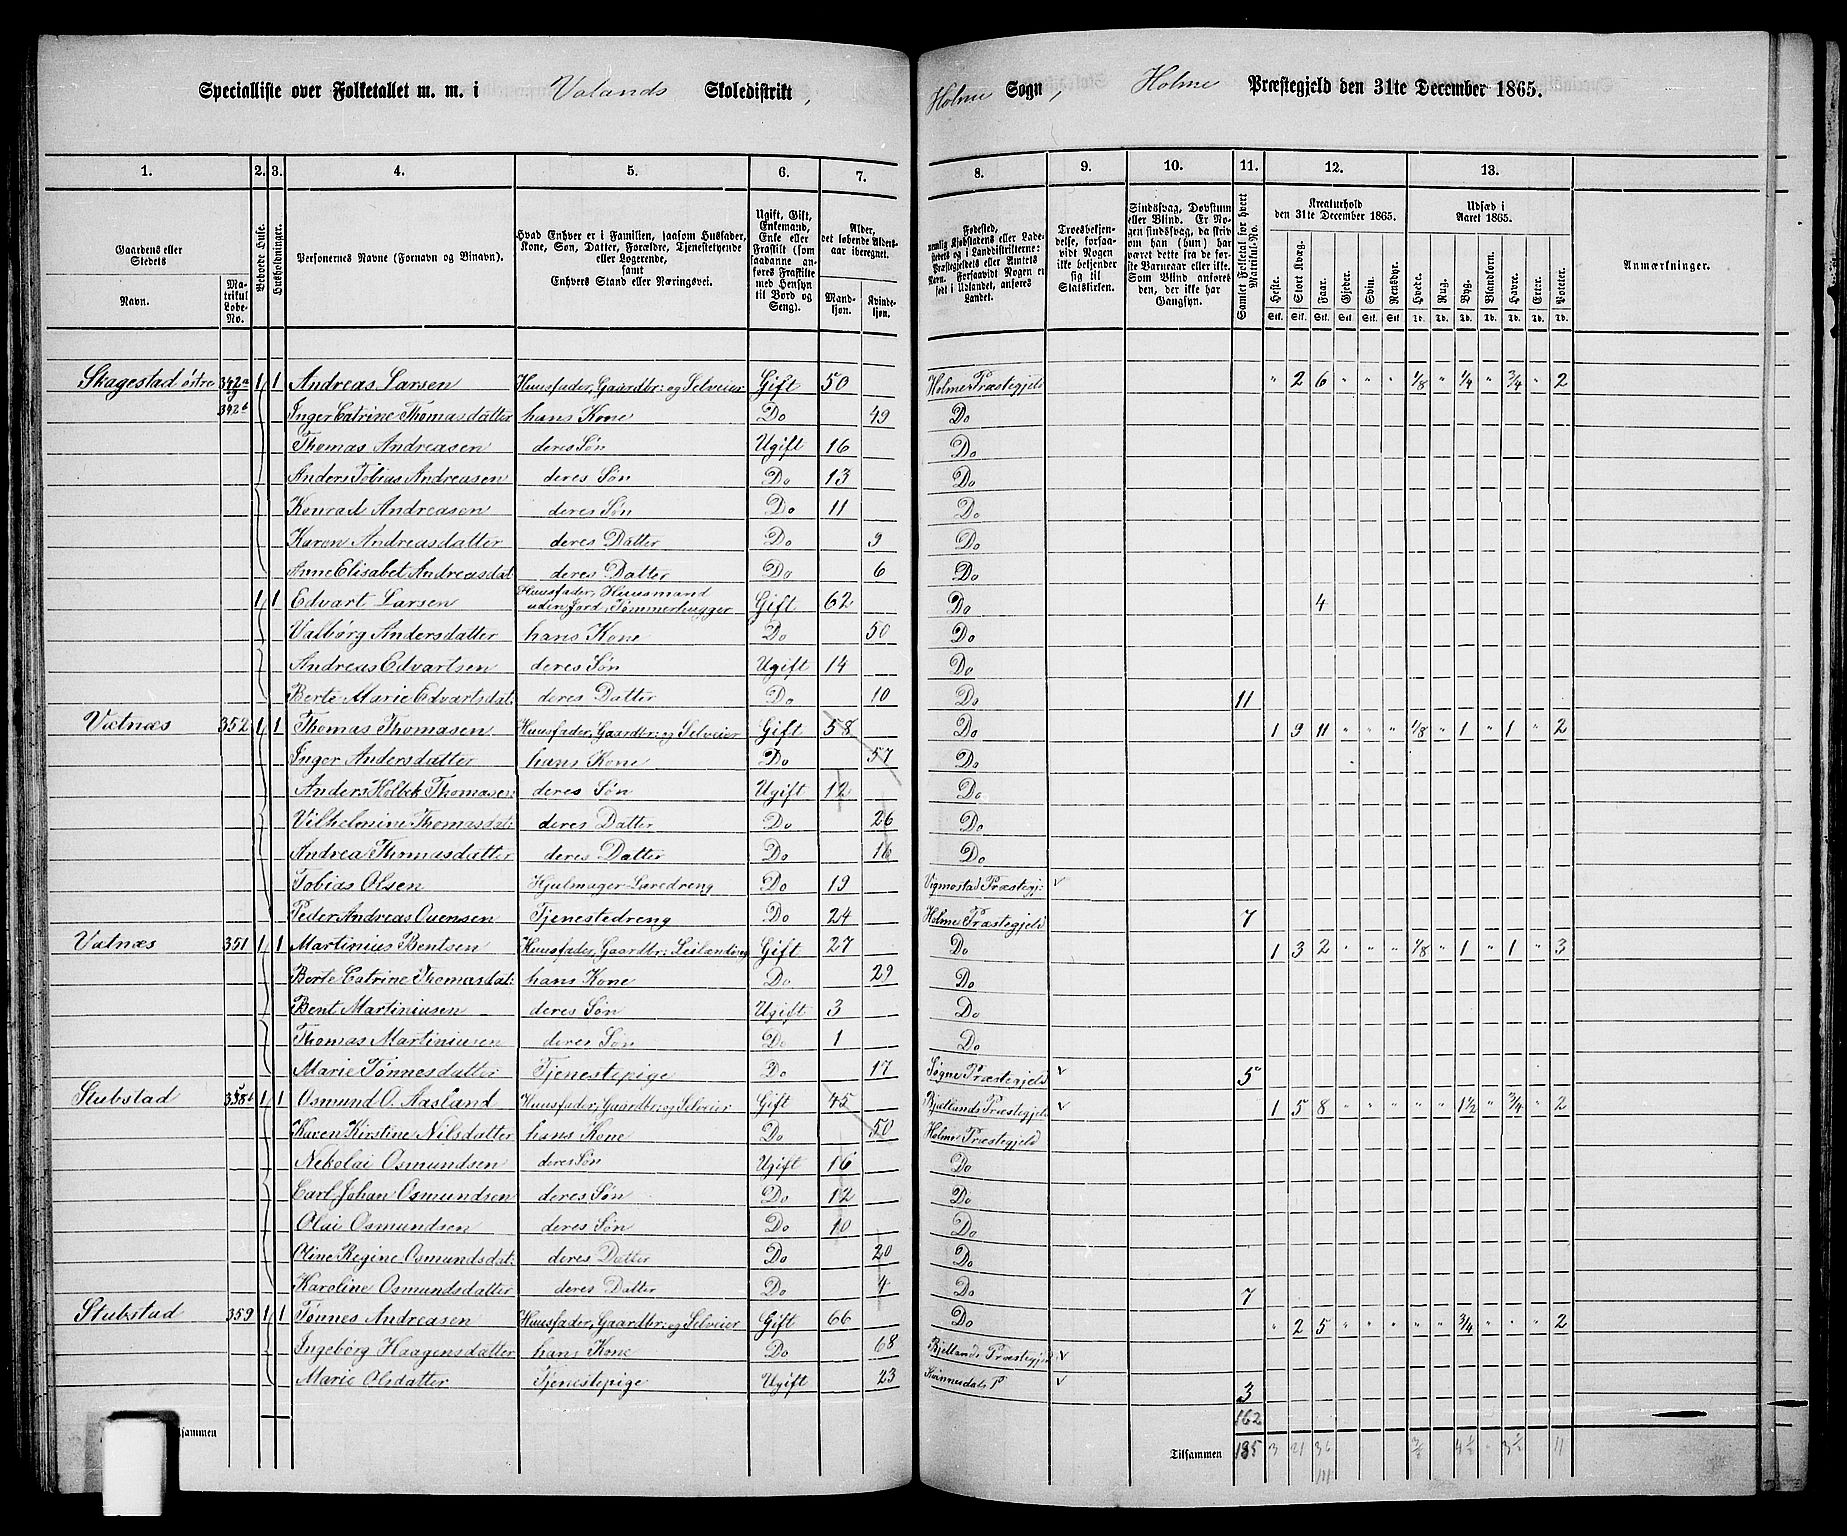 Specialliste over Folketallet m. m. i Valands Skoledistrikt, Holme Sogn, Holme Præstegjeld den 31te December 1865.
1. 2. 3. 4. 5. 6. 7. 8. 9. 10. 11. 12. 13.
Gaardens eller Stedets
Navn.
Matrikul Løbe-No.
Beboede Huse.
Husholdninger.
Personernes Navne (Fornavn og Tilnavn).
Hvad Enhver er i Familien, saasom Husfader, Kone, Søn, Datter, Forældre, Tjenestetyende eller Logerende, samt Enhvers Stand eller Næringsvei.
Ugift, Gift, Enkemand, Enke eller Fraskilt (som saadanne anføres Fraskilte med Hensyn til Bord og Seng).
Alder, det løbende Alders-aar iberegnet.
Mand-kjøn. Kvinde-kjøn.
Fødested,
Troesbekjendelse, forsaavidt Nogen ikke bekjender sig til Statskirken.
Sindssvag, Døvstum eller Blind.
Samlet Folketal for hvert Matrikul-No.
Kreaturhold den 31te December 1865.
Udsæd i Aaret 1865.
Anmærkninger.
Heste. Stort Kvæg. Faar. Gjeder. Sviin. Rensdyr. Hvede. Rug. Byg. Blandkorn. Havre. Erter. Poteter.
Skagestad østre 342a 1 1 Andreas Larsen Huusfader, Gaardbr: og Selveier Gift 50 Holme Præstegjeld " 2 6 " " " 1/8 " 1/4 " 3/4 " 2
342b Inger Catrine Thomasdatter hans Kone Do 49 Do
Thomas Andreasen deres Søn Ugift 16 Do
Anders Tobias Andreasen deres Søn Do 13 Do
Konrad Andreasen deres Søn Do 11 Do
Karen Andreasdatter deres Datter Do 9 Do
Anne Elisabet Andreasdat: deres Datter Do 6 Do
1 1 Edvart Larsen Huusfader, Huusmand uden Jord, Tømmerhugger Gift 62 Do 4
Valborg Andersdatter hans Kone Do 50 Do
Andreas Edvartsen deres Søn Ugift 14 Do
Berte Marie Edvartsdat: deres Datter Do 10 Do 11
Vatnæs 352 1 1 Thomas Thomasen Huusfader, Gaardbr: og Selveier Gift 58 Do 1 9 11 " " " 1/8 " 1 " 1 " 2
Inger Andersdatter hans Kone Do 57 Do
Anders Holbek Thomasen: deres Søn Ugift 12 Do
Vilhelmine Thomasdat: deres Datter Do 26 Do
Andrea Thomasdatter deres Datter Do 16 Do
Tobias Olsen Hjulmager-Læredreng Do 19 Vigmostad Præstegj: v
Peder Andreas Ouensen Tjenestedreng Do 24 Holme Præstegjeld 7
Vatnæs 351 1 1 Martinius Bentsen Huusfader, Gaardbr: Leilænding Gift 27 Do 1 3 2 " " " 1/8 " 1 " 1 " 3
Berte Catrine Thomasdat: hans Kone Do 29 Do
Bent Martiniusen deres Søn Ugift 3 Do
Thomas Martiniusen deres Søn Do 1 Do
Marie Tønnesdatter Tjenestepige Do 17 Søgne Præstegjeld v 5
Stubstad 1 1 Osmund O. Aasland Huusfader, Gaardbr: og Selveier Gift 45 Bjellands Præstegjeld v 1 5 8 " " " " " 1 1/2 " 3/4 " 2
Karen Kirstine Nilsdatter hans Kone Do 50 Holme Præstegjeld
Nekolai Osmundsen deres Søn Ugift 16 Do
Carl Johan Osmundsen deres Søn Do 12 Do
Olai Osmundsen deres Søn Do 10 Do
Oline Regine Osmundsdat: deres Datter Do 20 Do
Karoline Osmundsdatter deres Datter Do 4 Do 7
Stubstad 359 1 1 Tønnes Andreasen Huusfader, Gaardbr: og Selveier Gift 66 Do " 2 5 " " " " " 3/4 " " " 2
Ingebørg Haagensdatter hans Kone Do 68 Bjellands Præstegjeld v
Marie Olsdatter Tjenestepige Ugift 23 Kvinnesdals P v 3
162
Tilsammen 185 3 21 36 4 1/2 " 3 1/2 11